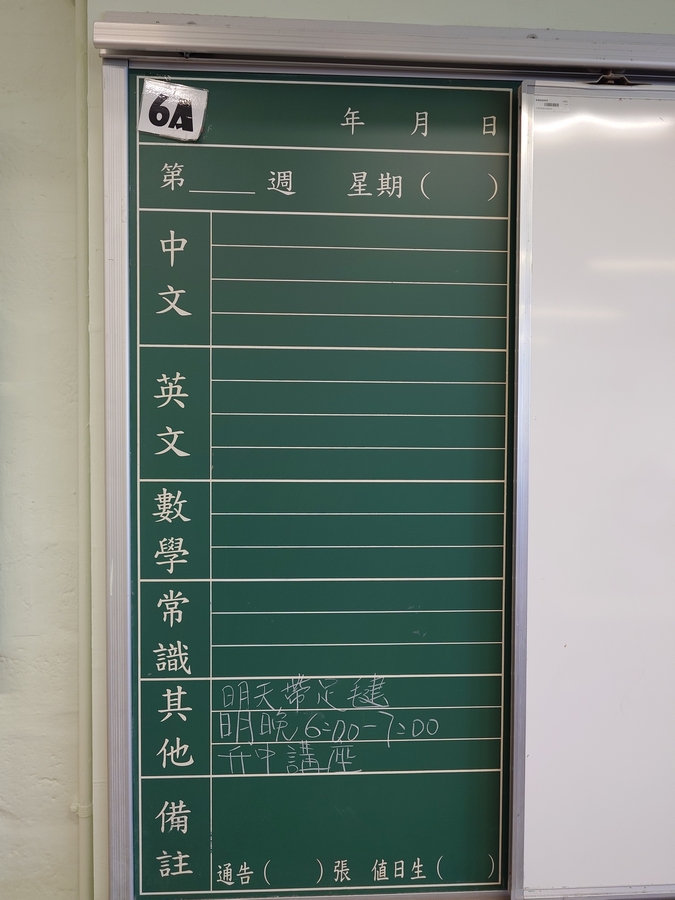 6A
年 月 日
第____週 星期( )
中文
英文
數學
常識
其他
明天帶足毽
明晚6:00-7:00
升中講座
備註
通告( )張 值日生( )